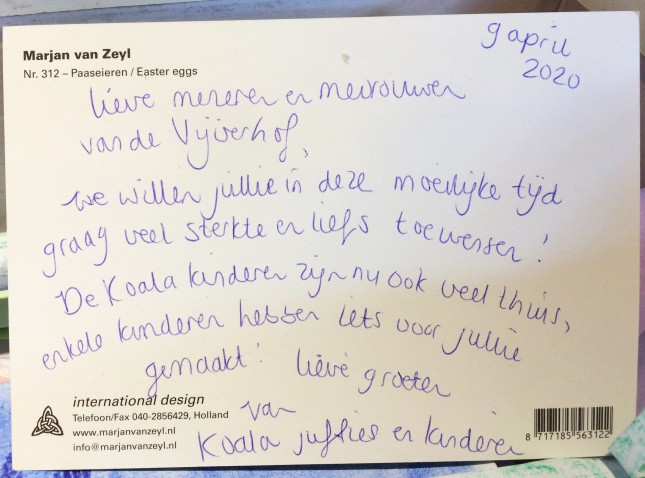 Marjan van Zeyl
Nr. 312 – Paaseieren / Easter eggs
9 april
2020
lieve meneren en mevrouwen
van de Vijverhof,
we willen jullie in deze moeilijke tijd
graag veel sterkte en liefs toewensen!
De Koala kinderen zijn nu ook veel thuis,
enkele kinderen hebben iets voor jullie
gemaakt! lieve groeten
van
Koala juffies en kinderen
international design
Telefoon/Fax 040-2856429, Holland
www.marjanvanzeyl.nl
info@marjanvanzeyl.nl
8 717185 563122